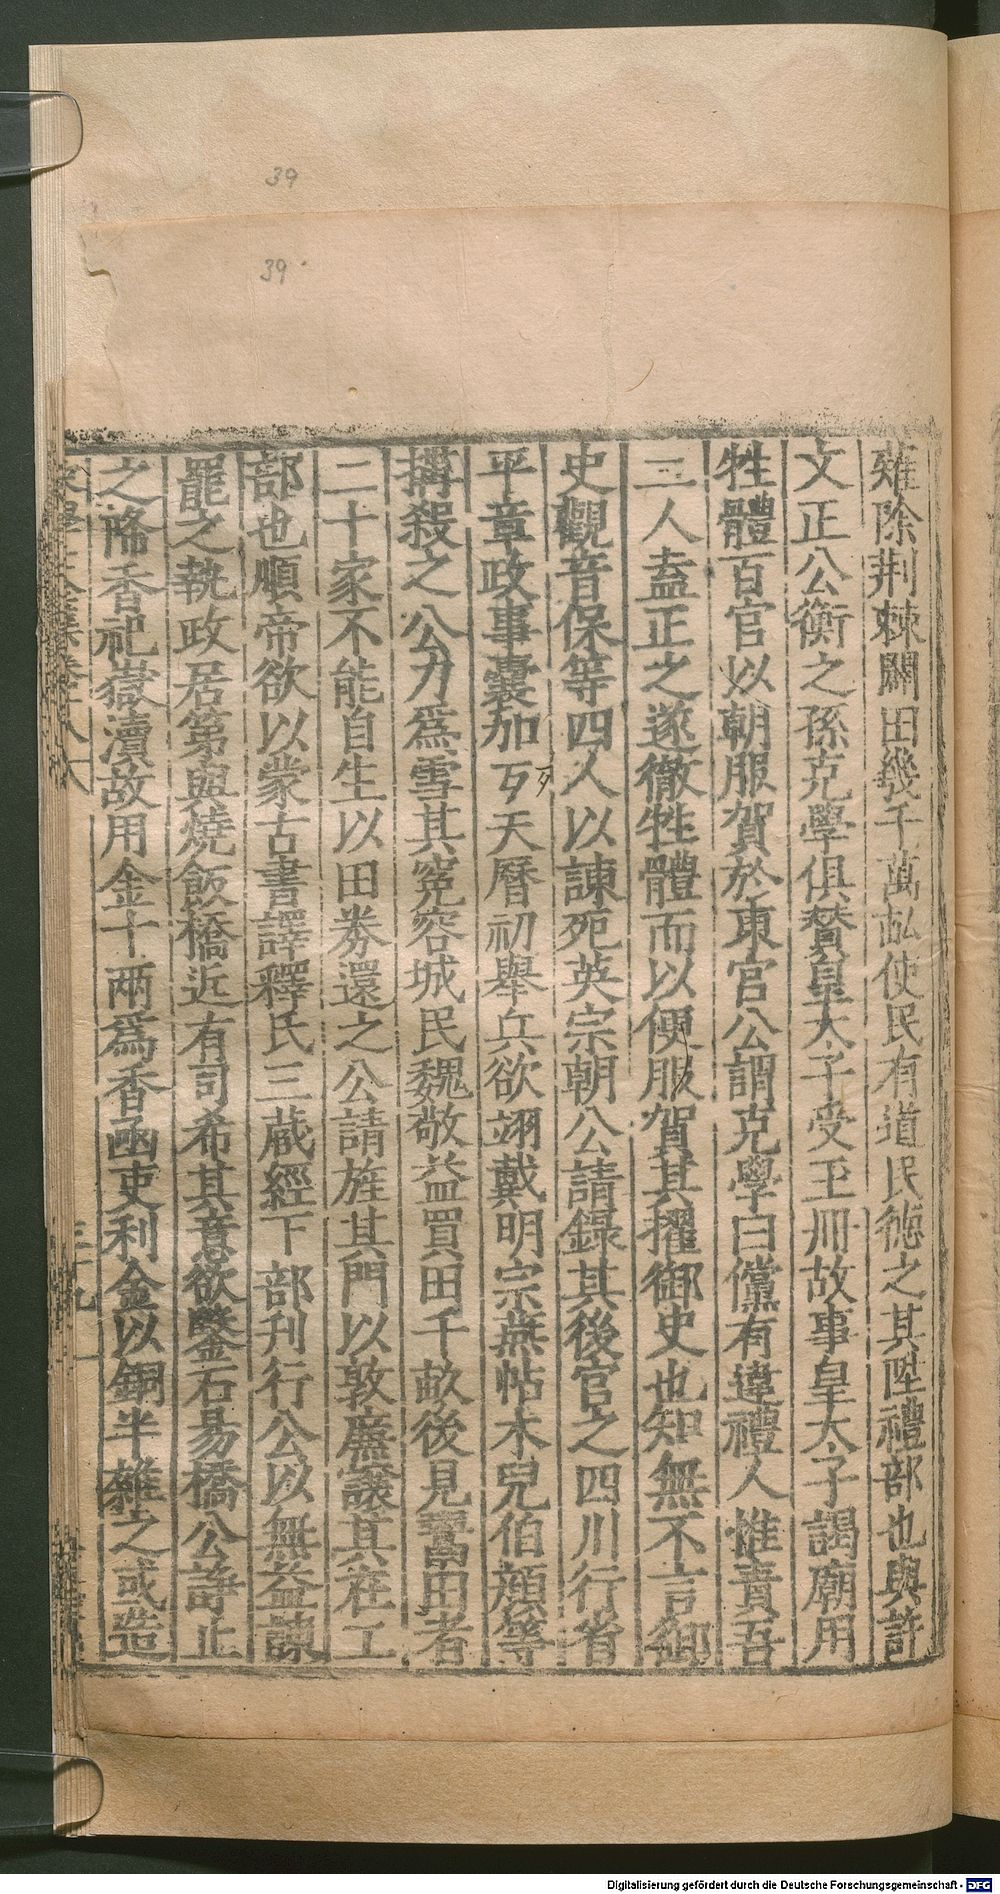 39
39
薙除荆棘闢田幾千萬畝使民有道民德之其陞禮部也與許
文正公衡之孫克學俱贊皇太子受玉冊故事皇太子謁廟用
牲體百官以朝服賀於東宫公謂克學曰儻有違禮人惟責吾
二人盍正之遂徹牲體而以便服賀其擢御史也知無不言御
史觀音保等四人以諫死英宗朝公請錄其後官之四川行省
平章政事囊加歹天曆初舉兵欲翊戴明宗燕帖木兒伯顔等
搆殺之公力爲雪其寃容城民魏敬益買田千畝後見鬻田者
二十家不能自生以田券還之公請旌其門以敦廉讓其在工
部也順帝欲以蒙古書譯釋氏三蔵經下部刊行公以無益諫
罷之執政居第與燒飯橋近有司希其意欲鑿石易橋公諍止
之降香祀嶽瀆故用金十兩爲香函吏利金以銅半雜之或造
宋學士全集卷之八
三十九
Digitalisierung gefördert durch die Deutsche Forschungsgemeinschaft - DFG